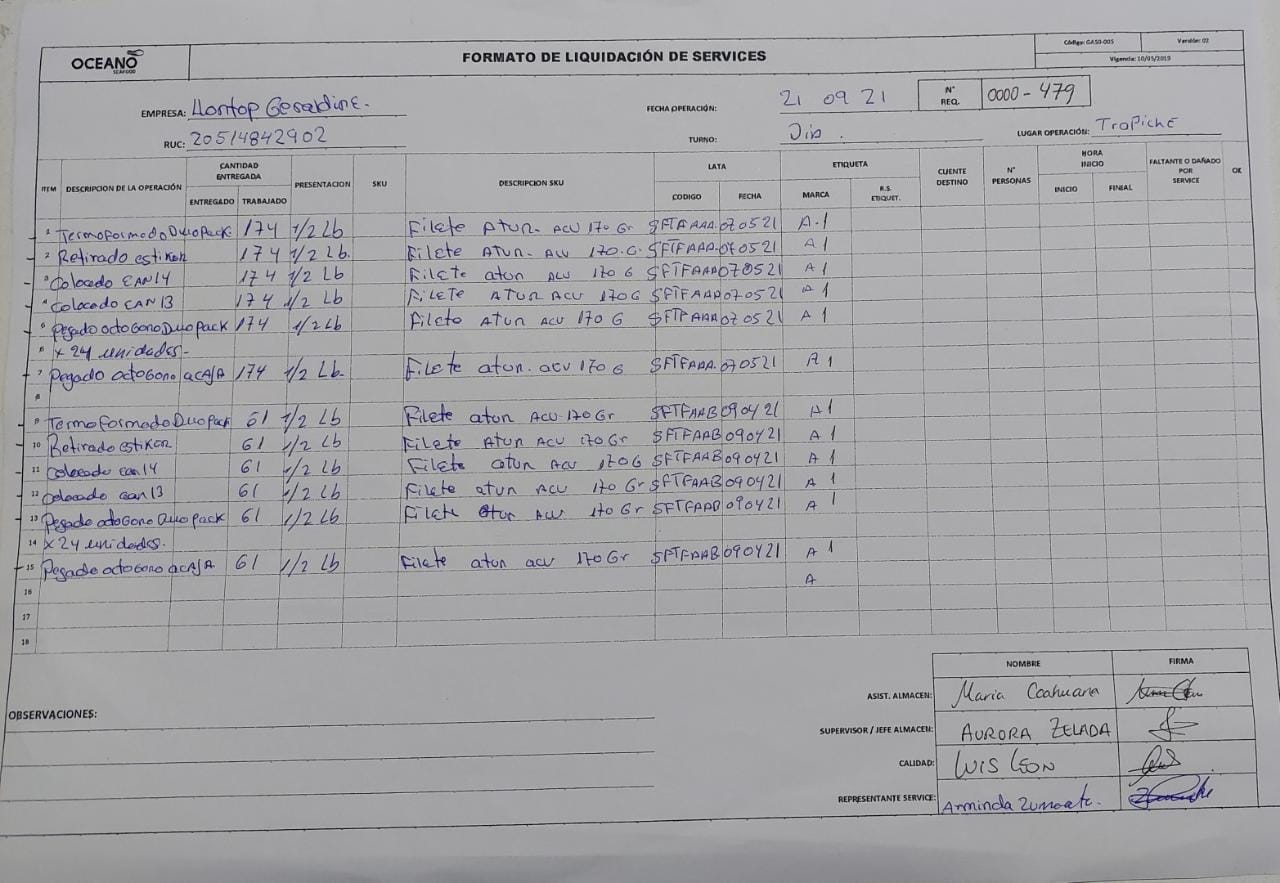 OCEANO
SEAFOOD
FORMATO DE LIQUIDACIÓN DE SERVICES
Código: GASO-005
Versión: 02
Vigencia: 10/05/2019
EMPRESA: Llontop Geraldine.
FECHA OPERACIÓN: 21 09 21
N° REQ. 0000-479
RUC: 20514842902
TURNO: Dia.
LUGAR OPERACIÓN: TroPiche
ITEM DESCRIPCION DE LA OPERACIÓN CANTIDAD ENTREGADA ENTREGADO TRABAJADO PRESENTACION SKU DESCRIPCION SKU LATA CODIGO FECHA ETIQUETA MARCA R.S. ETIQUET. CLIENTE DESTINO N° PERSONAS HORA INICIO INICIO FINIAL FALTANTE O DAÑADO POR SERVICE OK
1 TermoFormodo DuoPack 174 1/2 Lb Filete Atun. ACU 170 Gr SFTFAAA 070521 A-1
2 Retirado estiker 174 1/2 Lb. Filete Atun. ACU 170.G. SFTFAAA 070521 A 1
3 Colocado CAN 14 174 1/2 Lb Filete atun ACU 170 G SFTFAAA 070521 A 1
4 Colocado EAN 13 174 1/2 Lb FileTe ATUN ACU 170G SFTFAAA 070521 A 1
5 Pegado octoGono DuoPack 174 1/2 Lb Filete ATun ACU 170 G SFTFAAA 070521 A 1
6 x 24 unidades.
7 Pegado octoGono a CAJA 174 1/2 Lb. Filete atun. acu 170 G SFTFAAA 070521 A 1
8
9 TermoFormodo DuoPack 61 1/2 Lb Filete atun ACU 170 Gr SFTFAAB 090421 A 1
10 Retirado estiker 61 1/2 Lb Filete Atun ACU 170 Gr SFTFAAB 090421 A 1
11 Colocado ean 14 61 1/2 Lb Filete atun ACU 170G SFTFAAB 090421 A 1
12 Colocado ean 13 61 1/2 Lb Filete atun ACU 170 Gr SFTFAAB 090421 A 1
13 Pegado octoGono DuoPack 61 1/2 Lb Filete atun ACU 170 Gr SFTFAAD 090421 A 1
14 x 24 unidades.
15 Pegado octoGono a CAJA 61 1/2 Lb Filete atun acu 170 Gr SFTFAAB 090421 A 1
16 A
17
18
NOMBRE FIRMA
ASIST. ALMACEN: Maria Ccahuana
OBSERVACIONES:
SUPERVISOR / JEFE ALMACEN: AURORA ZELADA
CALIDAD: LUIS LEON
REPRESENTANTE SERVICE: Arminda